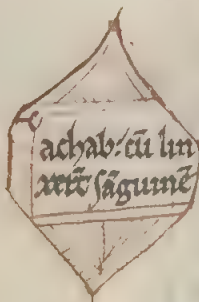 achab: cū lin
xerūt sāguinē